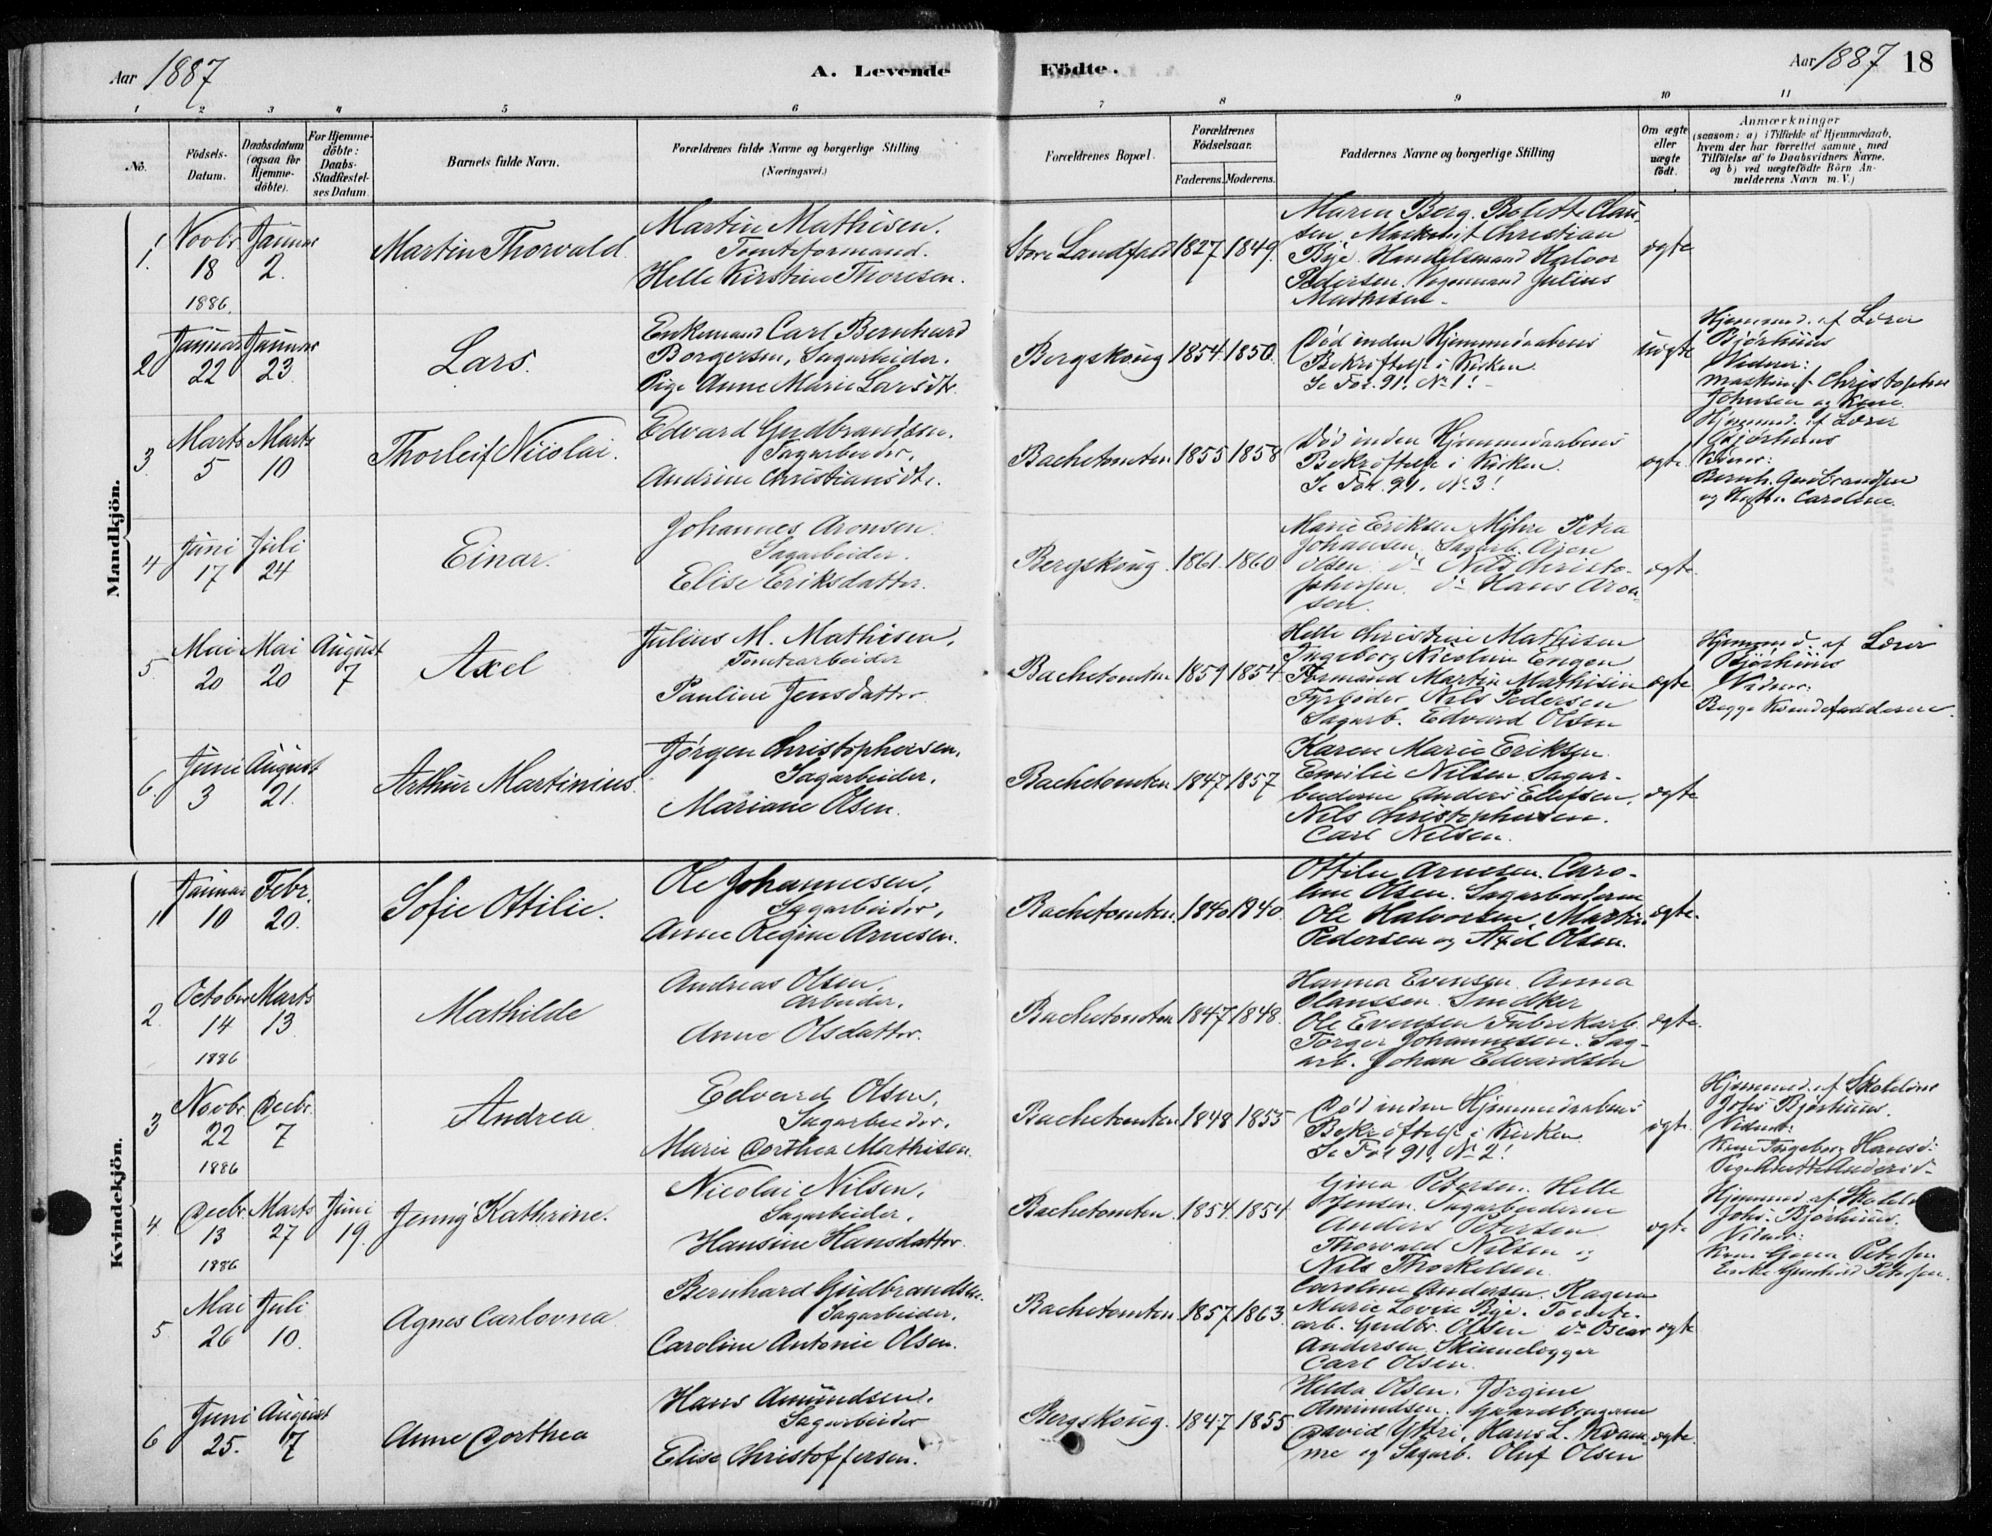 Aar 1887
A. Levende
Födte.
Aar 1887
18
1 2 3 4 5 6 7 8 9 10 11
No.
Födsels-
Datum.
Daabsdatum
(ogsaa for
Hjemme-
döbte).
For Hjemme-
döbte:
Daabs-
Stadfæstel-
ses Datum.
Barnets fulde Navn.
Forældrenes fulde Navne og borgerlige Stilling
(Næringsvei.)
Forældrenes Bopæl.
Forældrenes
Födselsaar.
Faderens. Moderens.
Faddernes Navne og borgerlige Stilling
Om ægte
eller
uægte
födt.
Anmærkninger
(saasom: a) i Tilfælde af Hjemmedaab,
hvem der har forrettet samme, med
Tilföielse af to Daabsvidners Navne.
og b) ved uægtefödte Börn An-
melderens Navn m. V.)
Mandkjön.
1.
Novbr
18
1886.
Januar
2.
Martin Thorvald
Martin Mathisen.
Tomteformand.
Helle Kirstine Thoresen.
Store Landfald 1827 1849.
Maren Berg. Bolette Clau
sen. Maskinist Christian
Bye. Handelsmand Halvor
Pedersen. Vognmand Julius
Mathisen.
ægte
2
Januar
22
Januar
23
Lars.
Enkemand Carl Bernhard
Borgersen, Sagarbeider.
Pige Anne Marie Larsdtr.
Bergskoug 1854. 1850.
Död inden Hjemmedaabens
Bekræftelse i Kirken.
Se Fol. 91. No 1!
uægte
Hjemmed. af Lærer
Bjørhuus
Vidner:
Maskinist Christopher
Johnsen og Kone.
3
Marts
5
Marts
10
Thorleif Nicolai.
Edvard Gudbrandsen.
Sagarbeider.
Andrine Christiansdtr.
Bachetomten 1855 1858
Död inden Hjemmedaabens
Bekræftelse i Kirken.
Se Fol. 91. No 3!
ægte
Hjemmed. af Lærer
Bjørhuus
Vidner:
Bernh. Gudbrandsen
og Hustru Caroline.
4
Juni
17
Juli
24
Einar.
Johannes Aronsen.
Sagarbeider.
Elise Eriksdatter.
Bergskoug. 1861. 1860
Marie Eriksen Myhre Petra
Johansen. Sagarb.
Olsen. do Nils Christo-
phersen. do Hans Aron-
sen.
ægte.
5
Mai
20
Mai
20
August
7
Axel
Julius M. Mathisen,
Tomtearbeider
Pauline Jensdatter
Bachetomten 1859 1854
Helle Christine Mathisen
Ingeborg Nicoline Engen
Formand Martin Mathisen
Fyrbøder Nils Pedersen
Sagarb. Edvard Olsen
ægte
Hjemmed. af Lærer
Bjørhuus
Vidner:
Begge Kvindefadderne.
6.
Juni
3
August
21.
Arthur Martinius.
Jørgen Christophersen.
Sagarbeider.
Mariane Olsen.
Bachetomten 1847 1857
Karen Marie Eriksen.
Emilie Nilsen. Sagar-
beiderne Anders Ellefsen,
Nils Christophersen.
Carl Nilsen.
ægte
Kvindekjön.
1
Januar
10
Febr.
20.
Sofie Ottilie.
Ole Johannesen,
Sagarbeider,
Anne Regine Arnesen.
Bachetomten. 1840 1840.
Ottilie Arnesen. Caro-
line Olsen. Sagarbeiderne
Ole Halvorsen, Martin
Pedersen og Axel Olsen.
ægte.
2
October
14
1886
Marts
13
Mathilde
Andreas Olsen,
Arbeider,
Anne Olsdatter.
Bachetomten 1847 1848.
Hanna Evensen. Anna
Olaussen. Smedker
Ole Evensen Fabrikarb.
Torger Johannesen. Sag-
arb. Johan Edvardsen
ægte.
3
Novbr.
22
1886
Decbr.
7
Andrea
Edvard Olsen,
Sagarbeider.
Marie Dorthea Mathisen.
Bachetomten 1848 1855
Död inden Hjemmedaabens
Bekræftelse i Kirken
Se Fol 91! No 2!
ægte.
Hjemmed. af Skolelærer
Johs Bjørhuus.
Vidner:
Kone Ingeborg Hansd:
Pige
4
Decbr.
13
1886
Marts
27
Juni
19.
Jenny Kathrine.
Nicolai Nilsen,
Sagarbeider,
Hansine Hansdatter.
Bachetomten. 1854. 1854.
Gina Petersen. Helle
Jensen. Sagarbeiderne
Anders Petersen
Thorvald Nilsen og
Nils Thorkelsen
ægte
Hjemmed af Skolelærer
Johs. Bjørhuus.
Vidner:
Kone Gina Petersen
Enke Gunhild Petersen.
5
Mai
26
Juli
10.
Agnes Carlovna.
Bernhard Gudbrandsen.
Sagarbeider.
Caroline Antonie Olsen.
Bachetomten 1857 1863
Caroline Andersen. Kagerne
Marie Lovise Bye. Tomte-
arb. Gudbr. Olsen do Oscar
Andersen. Skinnelægger
Carl Olsen.
ægte
6
Juni
25.
August
7
Anne Dorthea
Hans Amundsen.
Sagarbeider
Elise Christoffersen.
Bergskoug. 1847 1855
Helda Olsen. Jørgine
Amundsen. Gaardbrugerne
David Yttri, Hans L. Kvam-
me og Sagarb. Oluf Olsen
ægte.